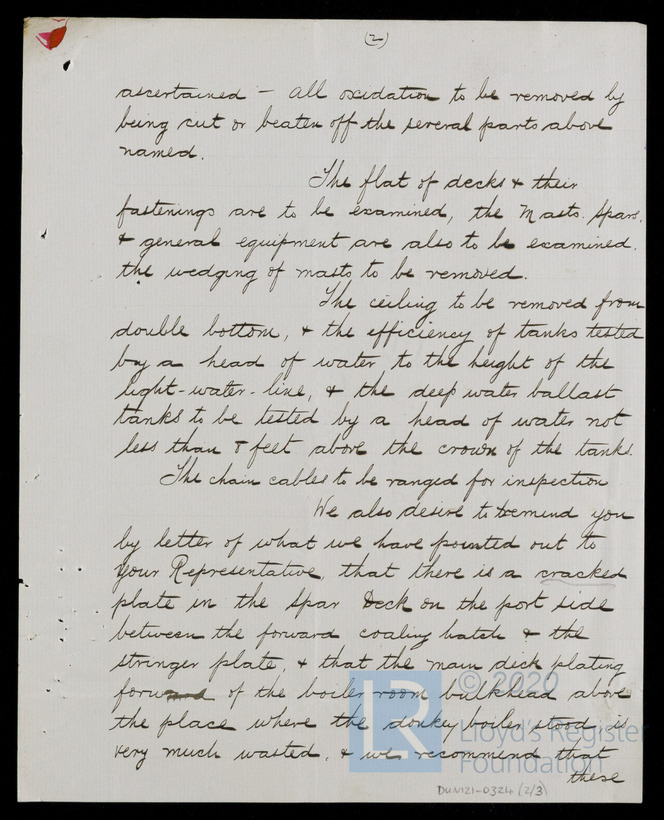 (2)
ascertained - all oxidation to be removed by
being cut or beaten off the several parts above
named.
The flat of decks & their
fastenings are to be examined, the Masts. Spars.
& general equipment are also to be examined.
the wedging of masts to be removed.
The ceiling to be removed from
double bottom, & the efficiency of tanks tested
by a head of water to the height of the
light-water-line, & the deep water ballast
tanks to be tested by a head of water not
less than 8 feet above the crown of the tanks.
The chain cables to be ranged for inspection
We also desire to remind you
by letter of what we have pointed out to
your Representative, that there is a cracked
plate in the Spar Deck on the port side
between the forward coaling hatch & the
stringer plate, & that the main deck plating
forward of the boiler room bulkhead above
the place where the donkey boiler stood is
very much wasted, & we recommend that
these
LR © 2020
Lloyd's Register
Foundation
DUN121-0324 (2/3)